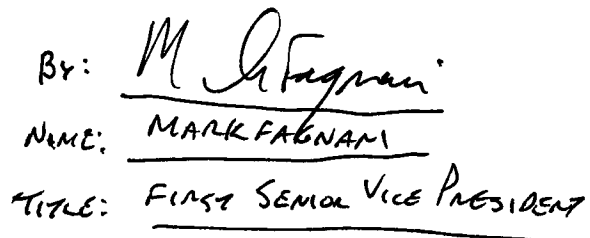 By: M Fagnani
NAME: MARK FAGNANI
TITLE: FIRST SENIOR VICE PRESIDENT